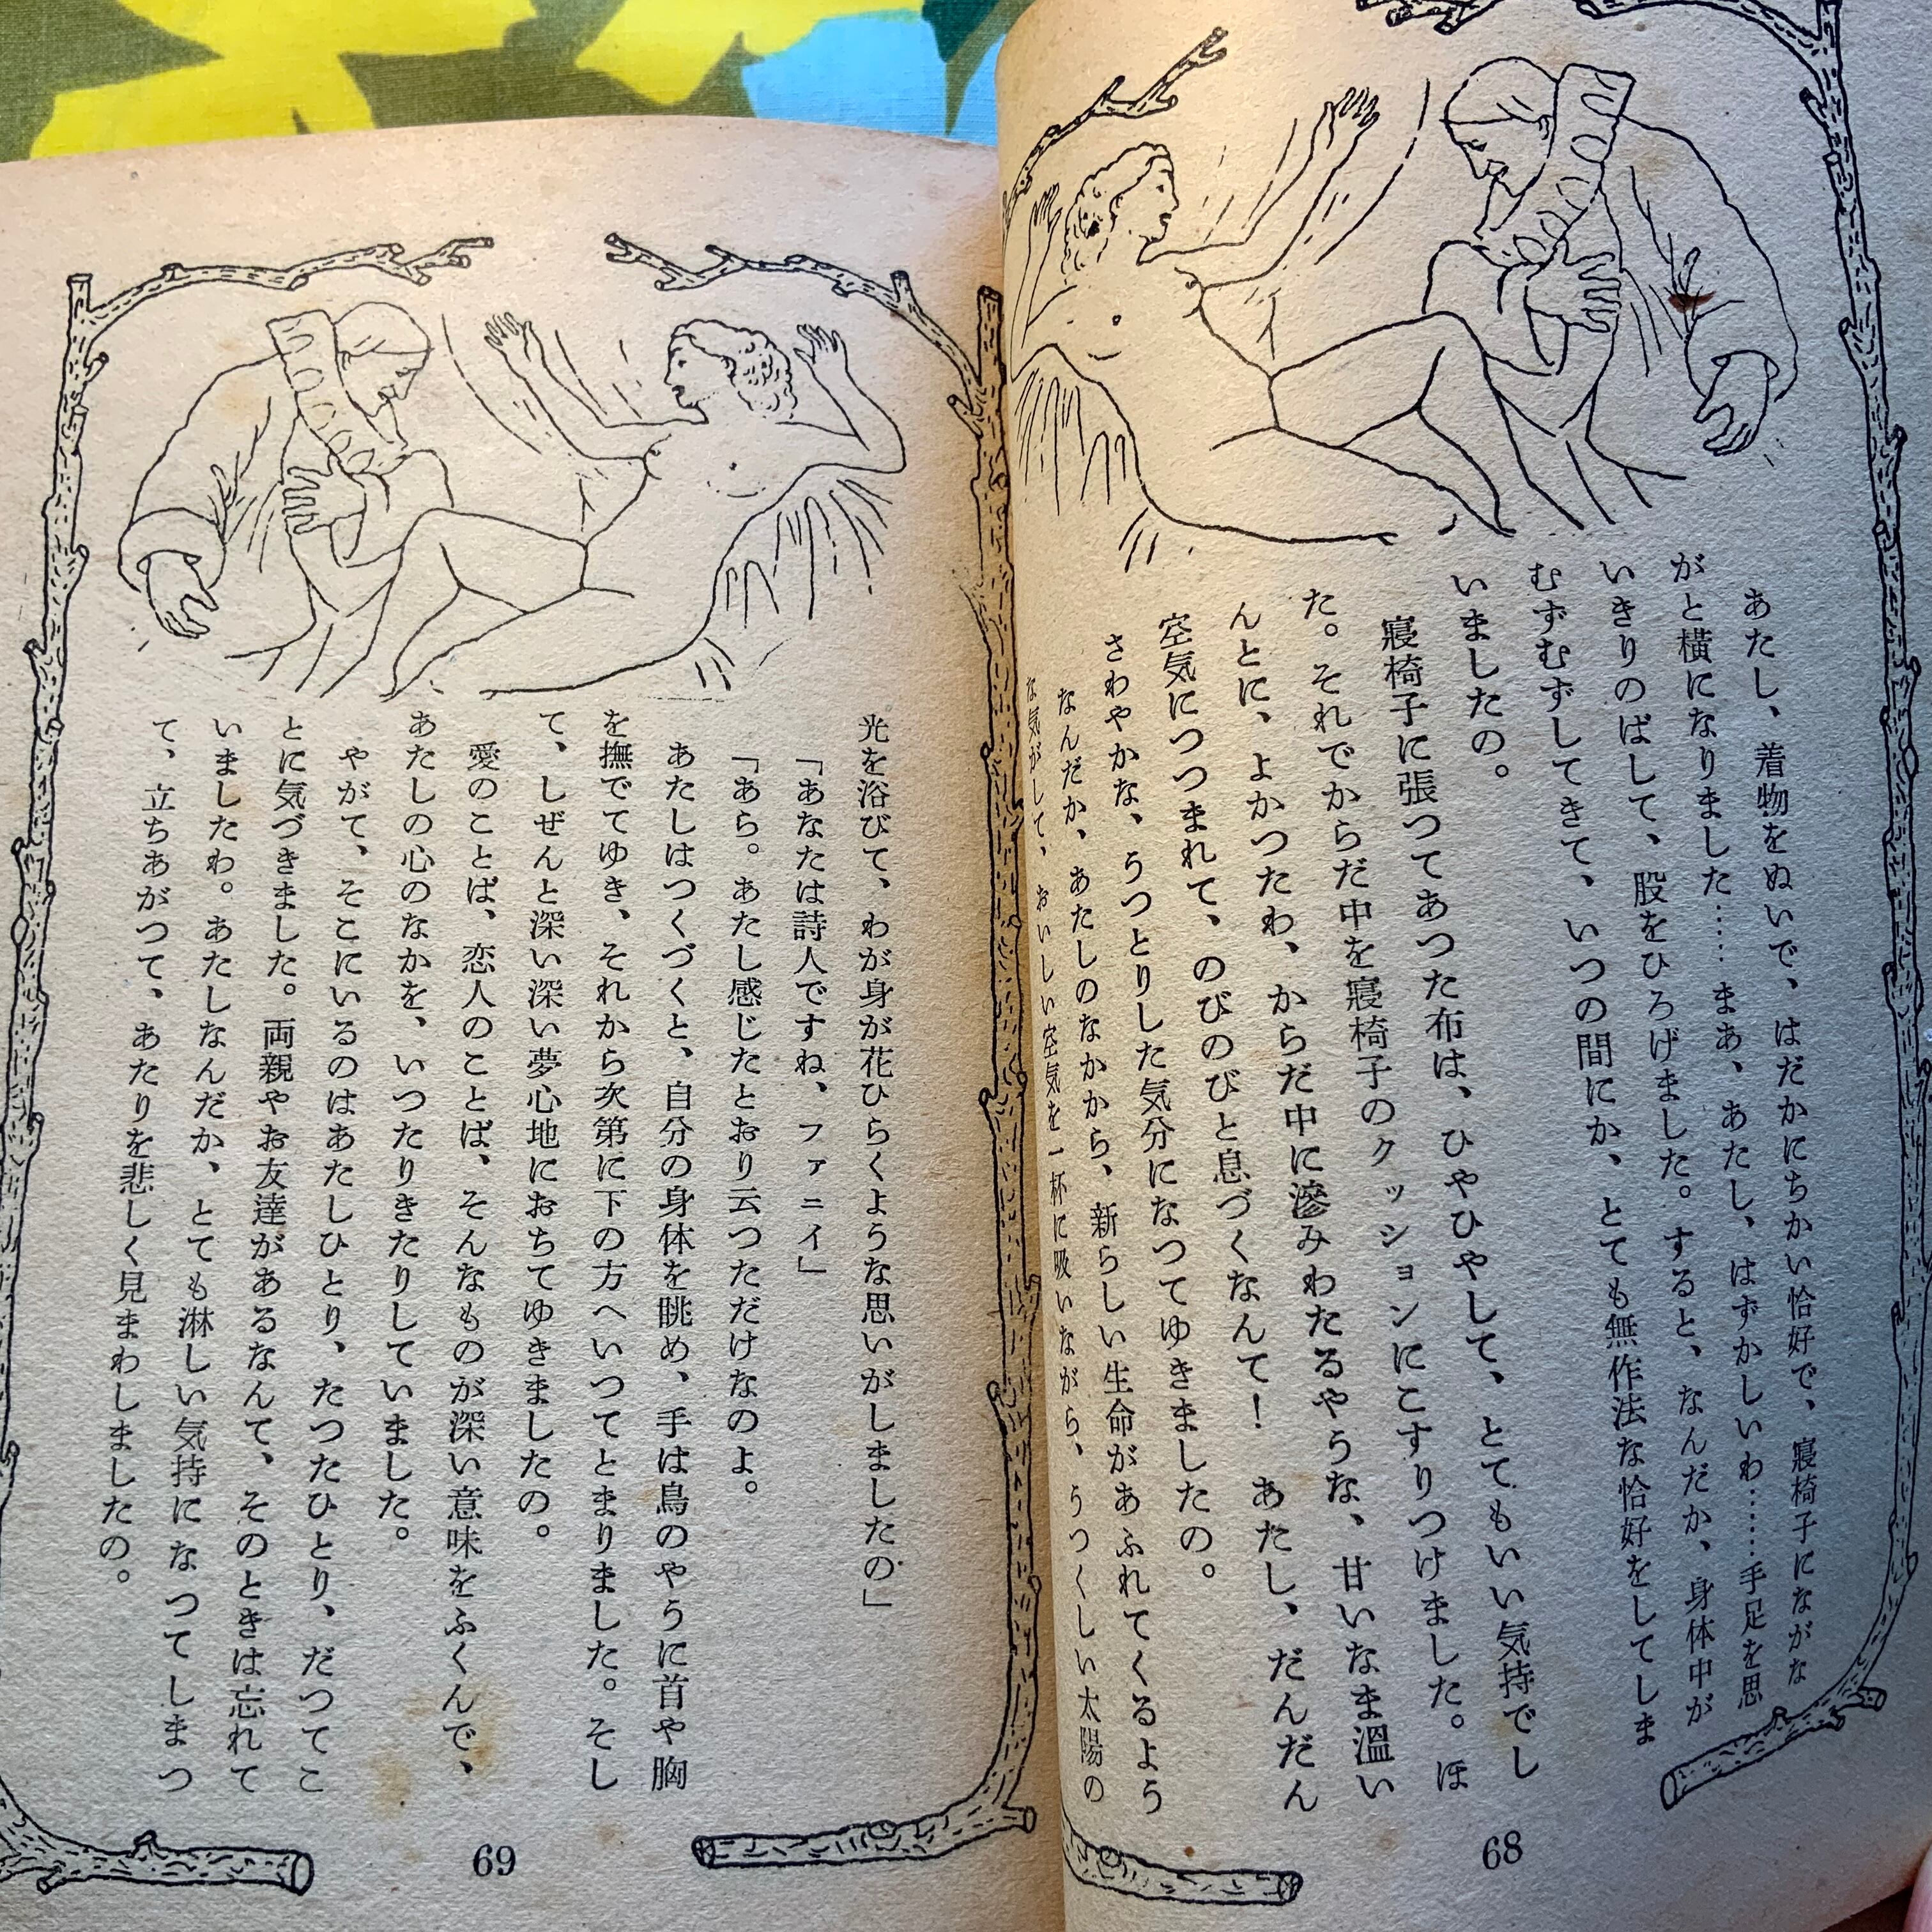 あたし、着物をぬいで、はだかにちかい恰好で、寝椅子にながな
がと横になりました……まあ、あたし、はずかしいわ……手足を思
いきりのばして、股をひろげました。すると、なんだか、身体中が
むずむずしてきて、いつの間にか、とても無作法な恰好をしてしま
いましたの。
寝椅子に張つてあつた布は、ひやひやして、とてもいい気持でし
た。それでからだ中を寝椅子のクッションにこすりつけました。ほ
んとに、よかつたわ、からだ中に滲みわたるやうな、甘いなま溫い
空気につつまれて、のびのびと息づくなんて！　あたし、だんだん
さわやかな、うつとりした気分になつてゆきましたの。
なんだか、あたしのなかから、新らしい生命があふれてくるよう
な気がして、おいしい空気を一杯に吸いながら、うつくしい太陽の
68
光を浴びて、わが身が花ひらくような思いがしましたの」
「あなたは詩人ですね、ファニイ」
「あら。あたし感じたとおり云つただけなのよ。
あたしはつくづくと、自分の身体を眺め、手は鳥のやうに首や胸
を撫でてゆき、それから次第に下の方へいつてとまりました。そし
て、しぜんと深い深い夢心地におちてゆきましたの。
愛のことば、恋人のことば、そんなものが深い意味をふくんで、
あたしの心のなかを、いつたりきたりしていました。
やがて、そこにいるのはあたしひとり、たつたひとり、だつてこ
とに気づきました。両親やお友達があるなんて、そのときは忘れて
いましたわ。あたしなんだか、とても淋しい気持になつてしまつ
て、立ちあがつて、あたりを悲しく見まわしましたの。
69